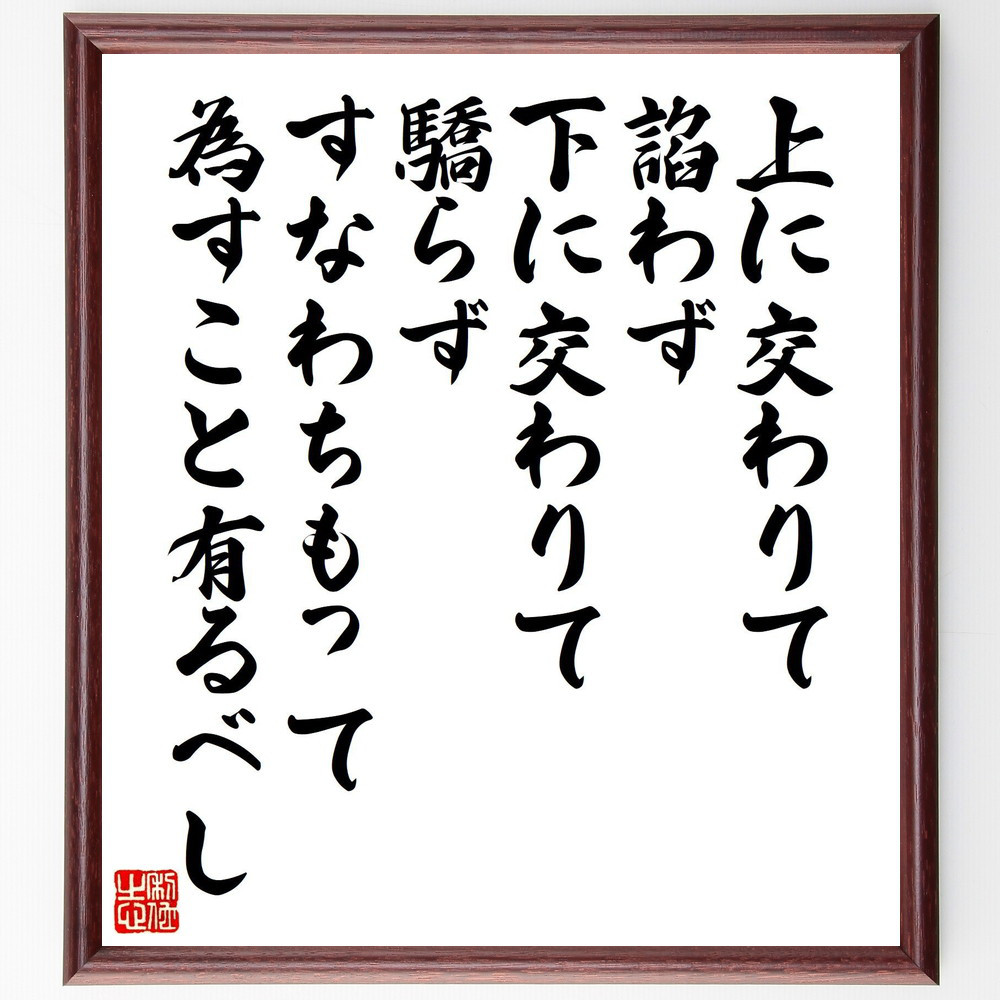 上に交わりて
諂わず
下に交わりて
驕らず
すなわちもって
為すこと有るべし